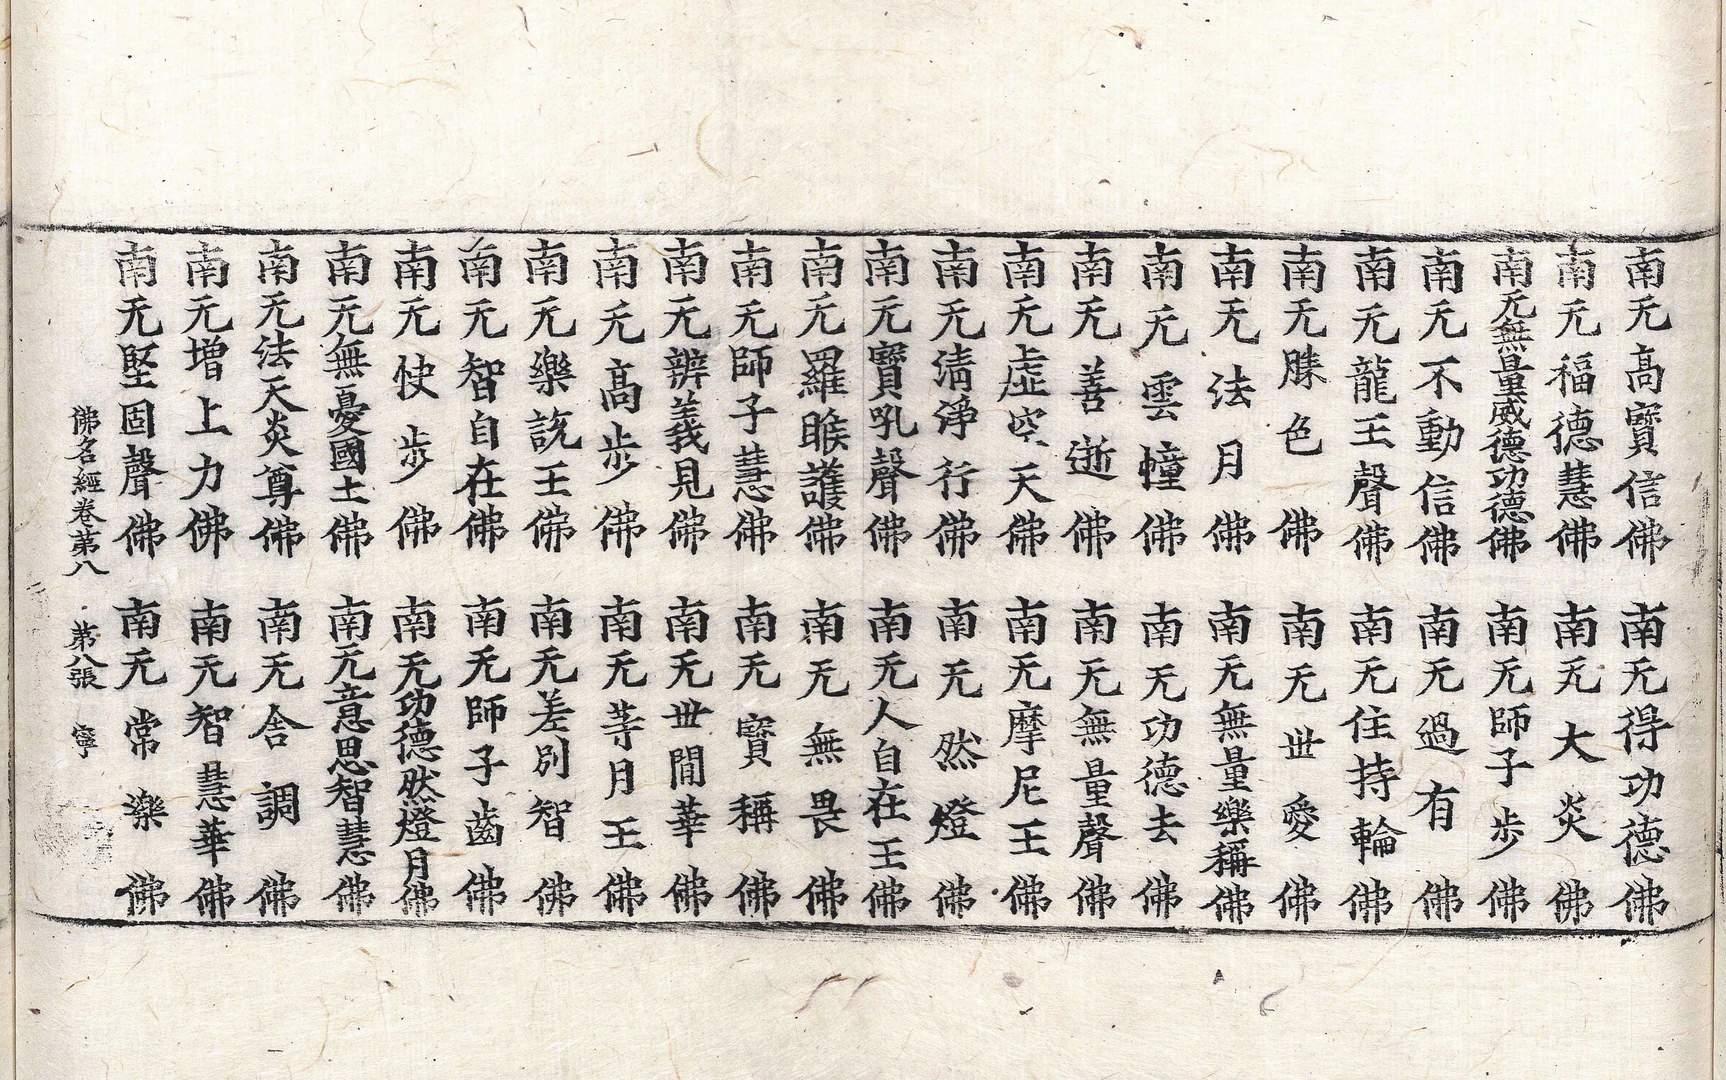 南无高寳信佛　南无得功德佛
南无福德慧佛　南无大炎佛
南无無量威德功德佛　南无師子步佛
南无不動信佛　南无過有佛
南无龍王聲佛　南无住持輪佛
南无勝色佛　南无世愛佛
南无法月佛　南无無量樂稱佛
南无雲幢佛　南无功德去佛
南无善逝佛　南无無量聲佛
南无虛空天佛　南无摩尼王佛
南无清淨行佛　南无然燈佛
南无寳吼聲佛　南无人自在王佛
南无羅睺護佛　南无無畏佛
南无師子慧佛　南无寳稱佛
南无辨義見佛　南无世閒華佛
南无高步佛　南无等月王佛
南无樂說王佛　南无差別智佛
南无智自在佛　南无師子齒佛
南无快步佛　南无功德然燈月佛
南无無憂國土佛　南无意思智慧佛
南无法天炎尊佛　南无舍調佛
南无增上力佛　南无智慧華佛
南无堅固聲佛　南无常樂佛
佛名經卷第八　第八張　寧